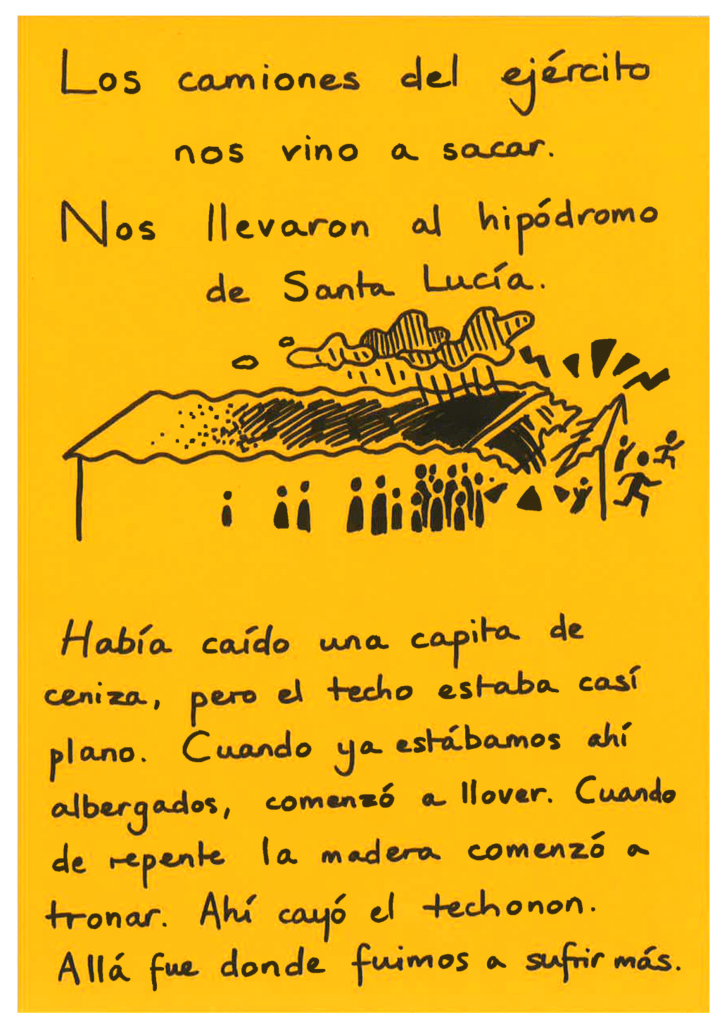 Los camiones del ejército
nos vino a sacar.
Nos llevaron al hipódromo
de Santa Lucía.
Había caído una capita de
ceniza, pero el techo estaba casí
plano. Cuando ya estábamos ahí
albergados, comenzó a llover. Cuando
de repente la madera comenzó a
tronar. Ahí cayó el techonon.
Allá fue donde fuimos a sufrir más.